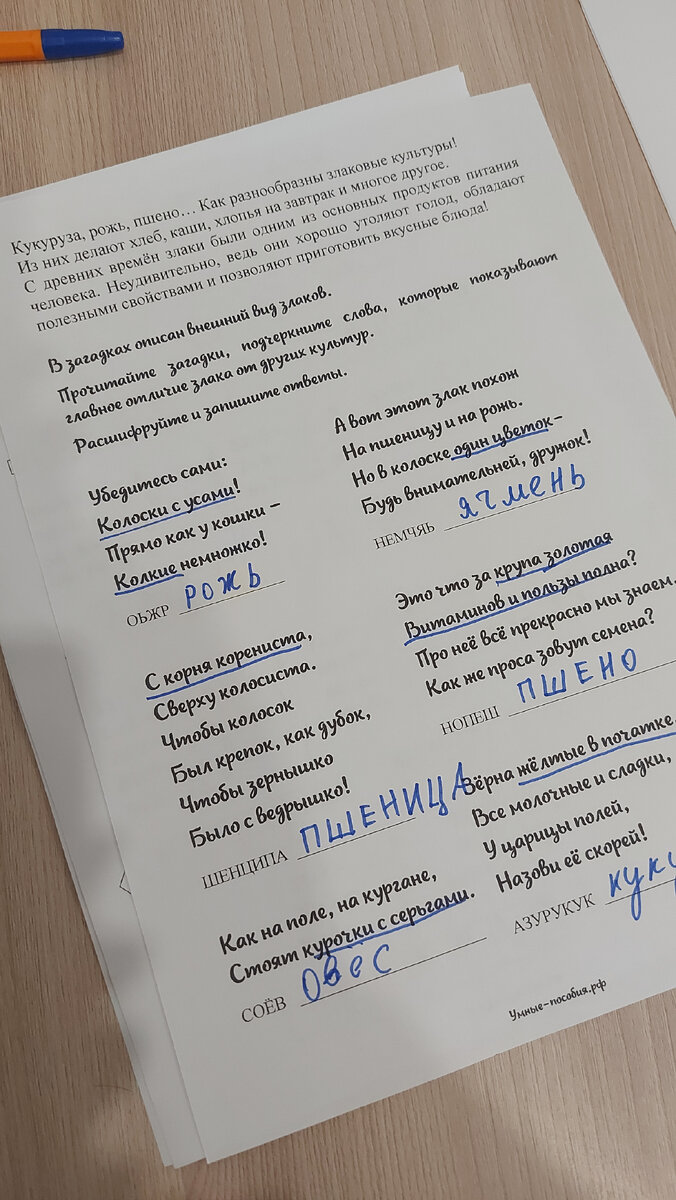 Кукуруза, рожь, пшено... Как разнообразны злаковые культуры!
Из них делают хлеб, каши, хлопья на завтрак и многое другое.
С древних времён злаки были одним из основных продуктов питания
человека. Неудивительно, ведь они хорошо утоляют голод, обладают
полезными свойствами и позволяют приготовить вкусные блюда!
В загадках описан внешний вид злаков.
Прочитайте загадки, подчеркните слова, которые показывают
главное отличие злака от других культур.
Расшифруйте и запишите ответы.
Убедитесь сами:
Колоски с усами!
Прямо как у кошки –
Колкие немножко!
ОЬЖР РОЖЬ
С корня корениста,
Сверху колосиста.
Чтобы колосок
Был крепок, как дубок,
Чтобы зернышко
Было с ведрышко!
ШЕНЦИПА ПШЕНИЦА
Как на поле, на кургане,
Стоят курочки с серьгами.
СОЁВ ОВЁС
А вот этот злак похож
На пшеницу и на рожь.
Но в колоске один цветок–
Будь внимательней, дружок!
НЕМЧЯЬ ЯЧМЕНЬ
Это что за крупа золотая
Витаминов и пользы полна?
Про неё всё прекрасно мы знаем.
Как же проса зовут семена?
НОПЕШ ПШЕНО
Зёрна жёлтые в початке,
Все молочные и сладки,
У царицы полей,
Назови её скорей!
АЗУРУКУК
Умные-пособия.рф